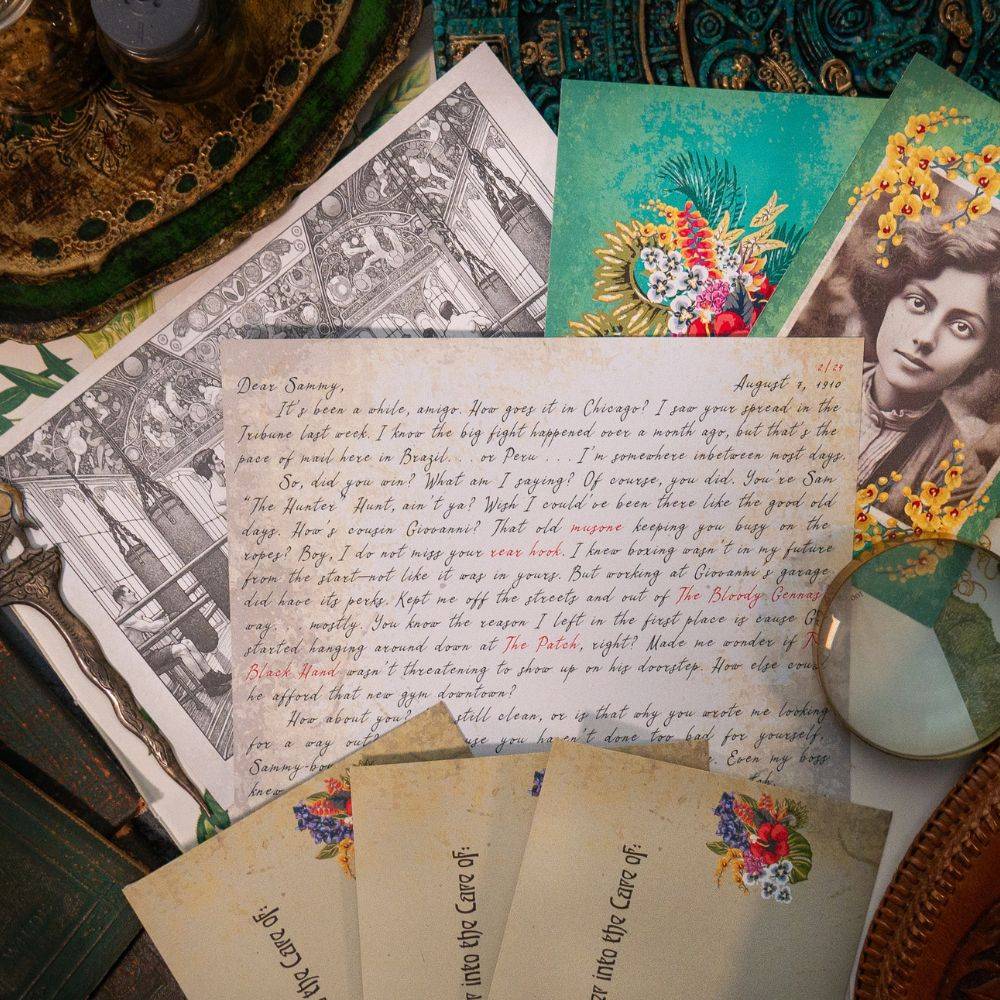 2/24
Dear Sammy, August 7, 1910
It's been a while, amigo. How goes it in Chicago? I saw your spread in the
Tribune last week. I know the big fight happened over a month ago, but that's the
pace of mail here in Brazil. . . or Peru . . . I'm somewhere inbetween most days.
So, did you win? What am I saying? Of course, you did. You're Sam
"The Hunter" Hunt, ain't ya? Wish I could've been there like the good old
days. How's cousin Giovanni? That old musone keeping you busy on the
ropes? Boy, I do not miss your rear hook. I knew boxing wasn't in my future
from the start—not like it was in yours. But working at Giovanni's garage
did have its perks. Kept me off the streets and out of The Bloody Gennas
way. . . mostly. You know the reason I left in the first place is cause
started hanging around down at The Patch, right? Made me wonder if
Black Hand wasn't threatening to show up on his doorstep. How else
he afford that new gym downtown?
How about you? still clean, or is that why you wrote me looking
for a way you haven't done too bad for yourself,
Sammy-boy Even my boss
knew
the Care of:
into the Care of:
into the Care of: